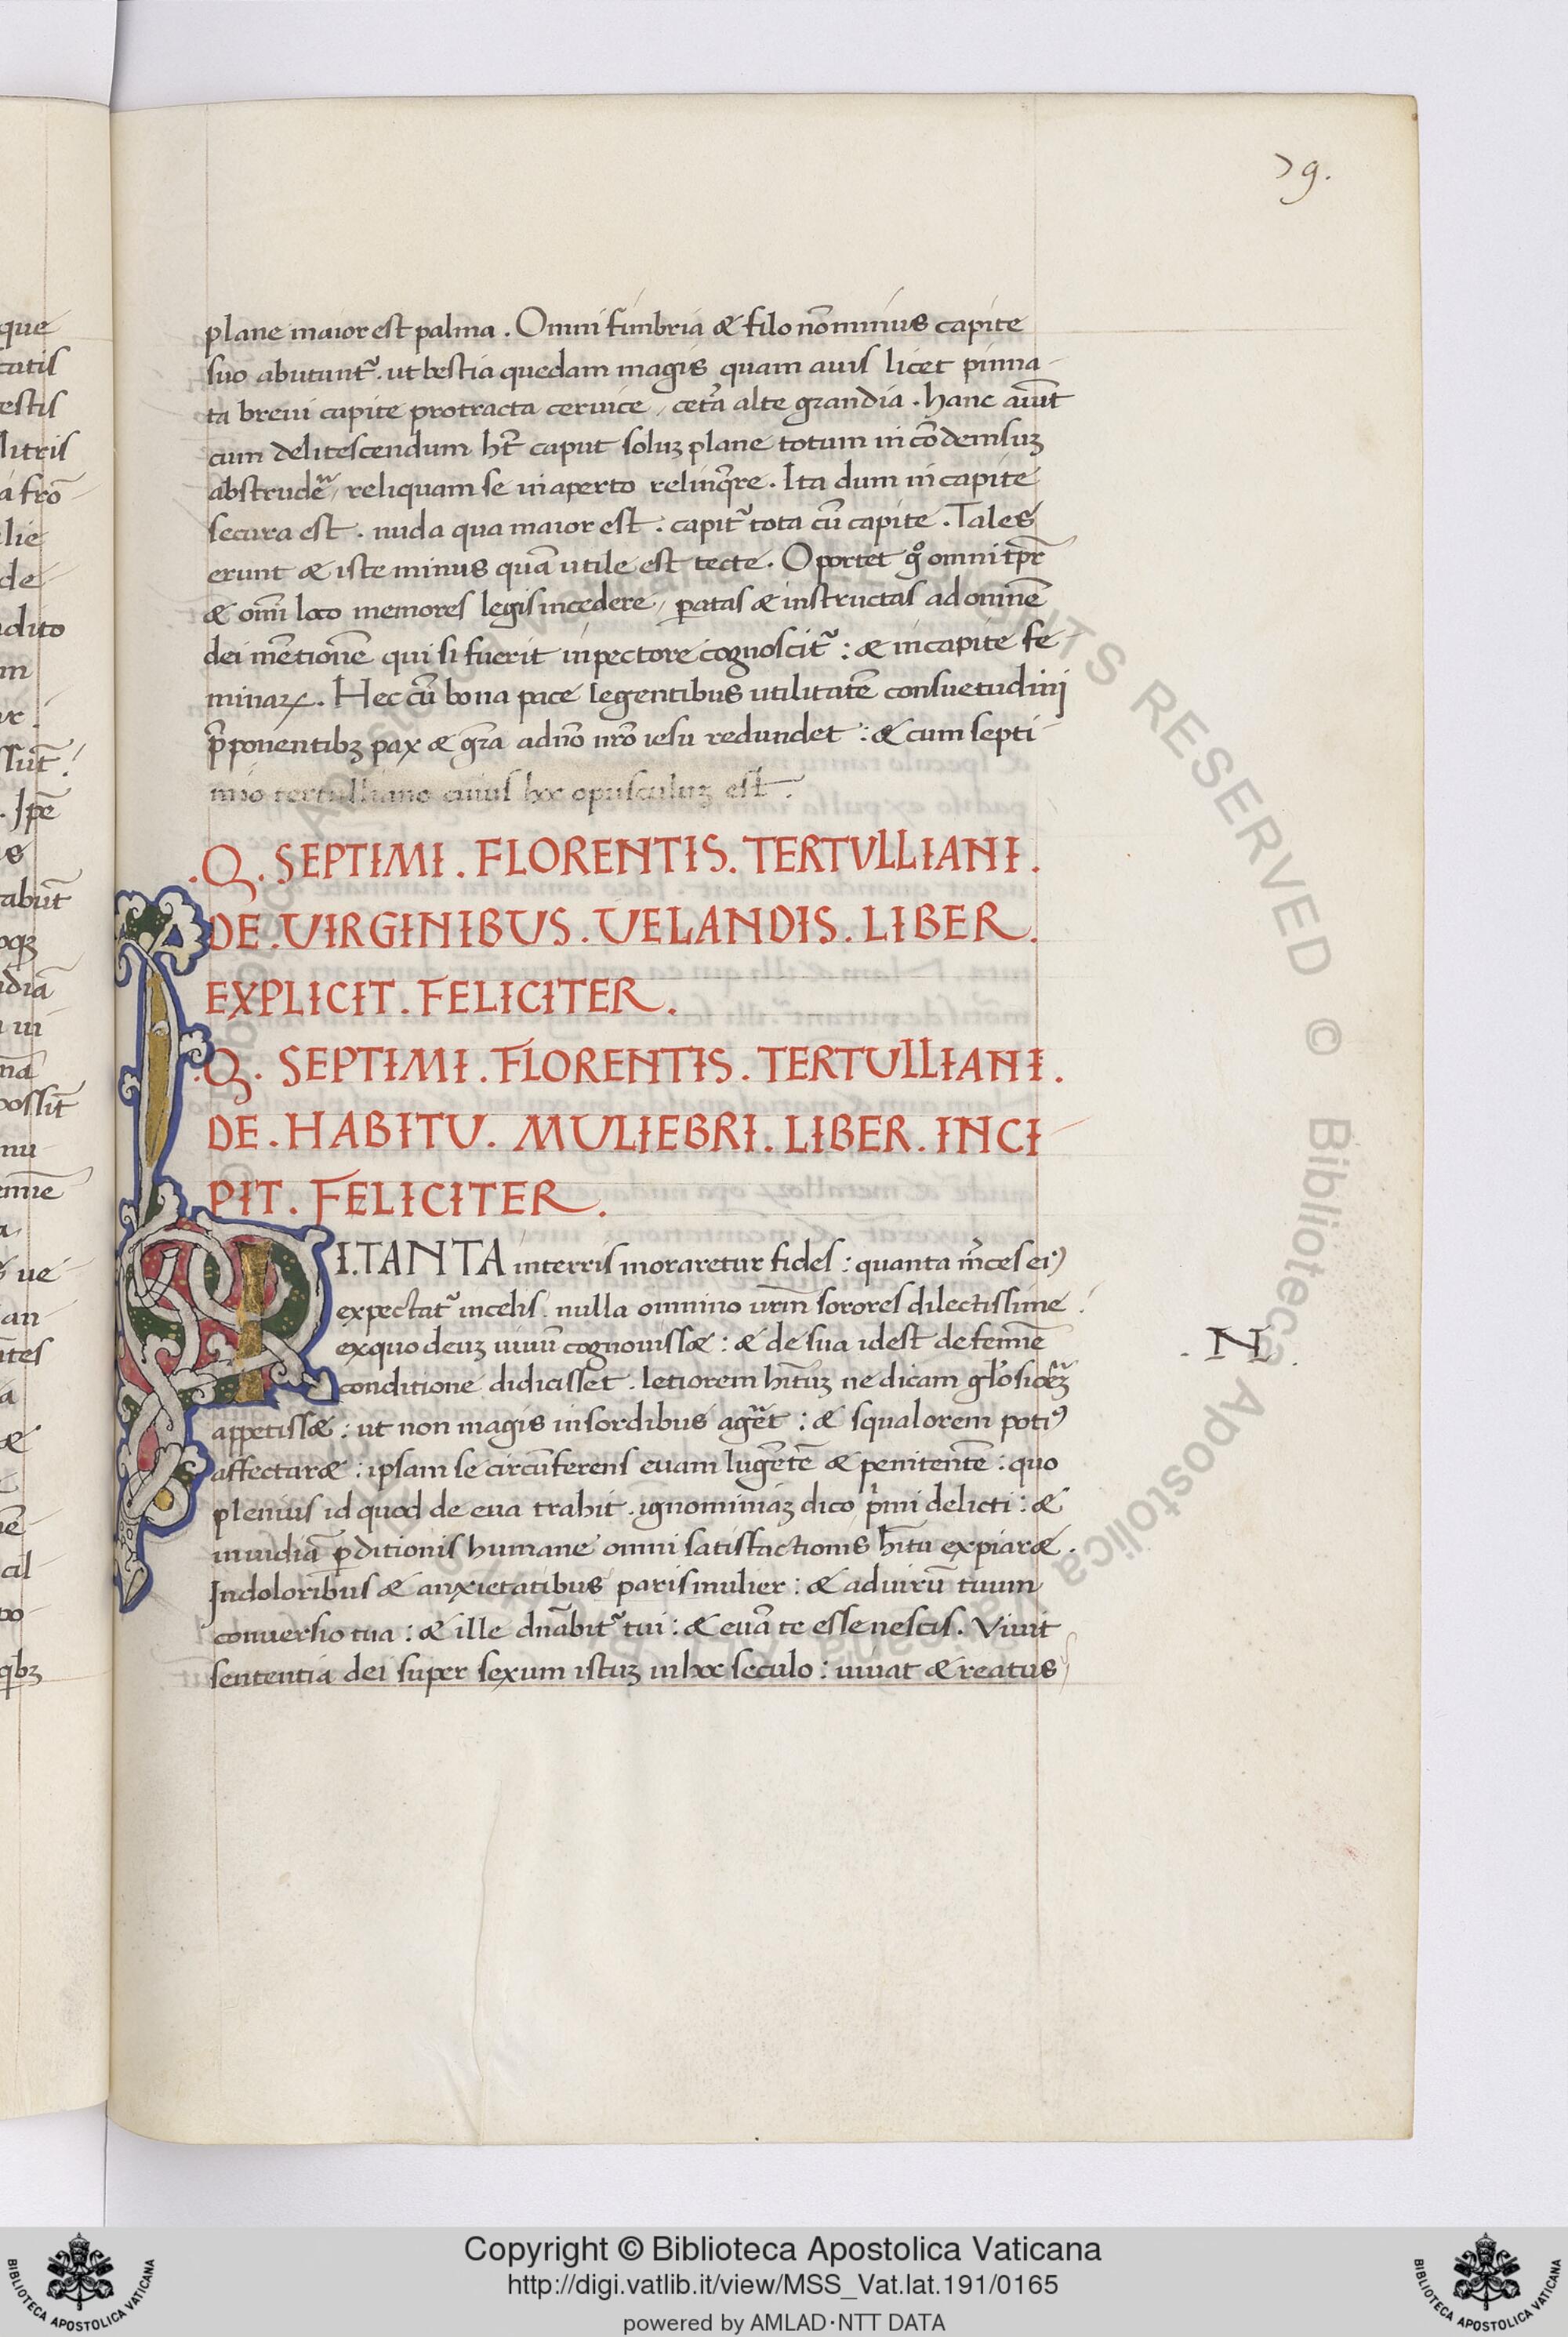 79.
plane maior est palma. Omni fimbria & filo nō minus capite
suo abutunt᷑. ut bestia quedam magis quam auis licet pinna-
ta breui capite protracta ceruice, cet̄a alte grandia. hanc aiūt
cum delitescendum hr̄t caput soluʒ plane totum in cōdensuʒ
abstrudēᷓ, reliquam se in aperto relinq̄re. Ita dum in capite
secura est. nuda qua maior est. capit᷑ tota cū capite. Tales
erunt & iste minus quā utile est tecte. Oportet gͦ omni tp̄r
& om̄i loco memores legis incedere, ꝑatas & instructas ad omnē
dei mētionē qui si fuerit in pectore cognoscit᷑: & in capite fe
minaꝝ. Hec cū bona pace legentibus utilitatē consuetudinj
p̄ponentibʒ pax & gr̄a a dn̄o nr̄o iesu redundet: & cum septi-
mio tertulliano cuius hoc opusculuʒ est.
.Q. SEPTIMI. FLORENTIS. TERTVLLIANI.
DE. UIRGINIBUS. UELANDIS. LIBER.
EXPLICIT. FELICITER.
.Q. SEPTIMI. FLORENTIS. TERTULLIANI.
DE. HABITU. MULIEBRI. LIBER. INCI-
PIT. FELICITER.
I. TANTA in terris moraretur fides: quanta m̄ces eiꝰ
expectat᷑ in celis. nulla omnino ur̄m sorores dilectissime
ex quo deuʒ uiuū cognouiss&: & de sua id est de femīe
conditione didicisset. letiorem hītuʒ ne dicam gl̄osiorēʒ
appetiss&: ut non magis in sordibus agēt: & squalorem potiꝰ
affectar&: ipsam se circūferens euam lugētē & penitentē: quo
plenius id quod de eua trahit. ignominiaʒ dico p̄mi delicti: &
inuidiā ꝑditionis humane omni satisfactionis hītu expiar&.
In doloribus & anxietatibus paris mulier: & ad uirū tuum
conuersio tua: & ille dn̄abit᷑ tui: & euā te esse nescis. Viuit
sententia dei super sexum istuʒ in hoc seculo: uiuat & reatus
. N .
Copyright © Biblioteca Apostolica Vaticana
http://digi.vatlib.it/view/MSS_Vat.lat.191/0165
powered by AMLAD·NTT DATA
BIBLIOTECA APOSTOLICA VATICANA
BIBLIOTECA APOSTOLICA VATICANA